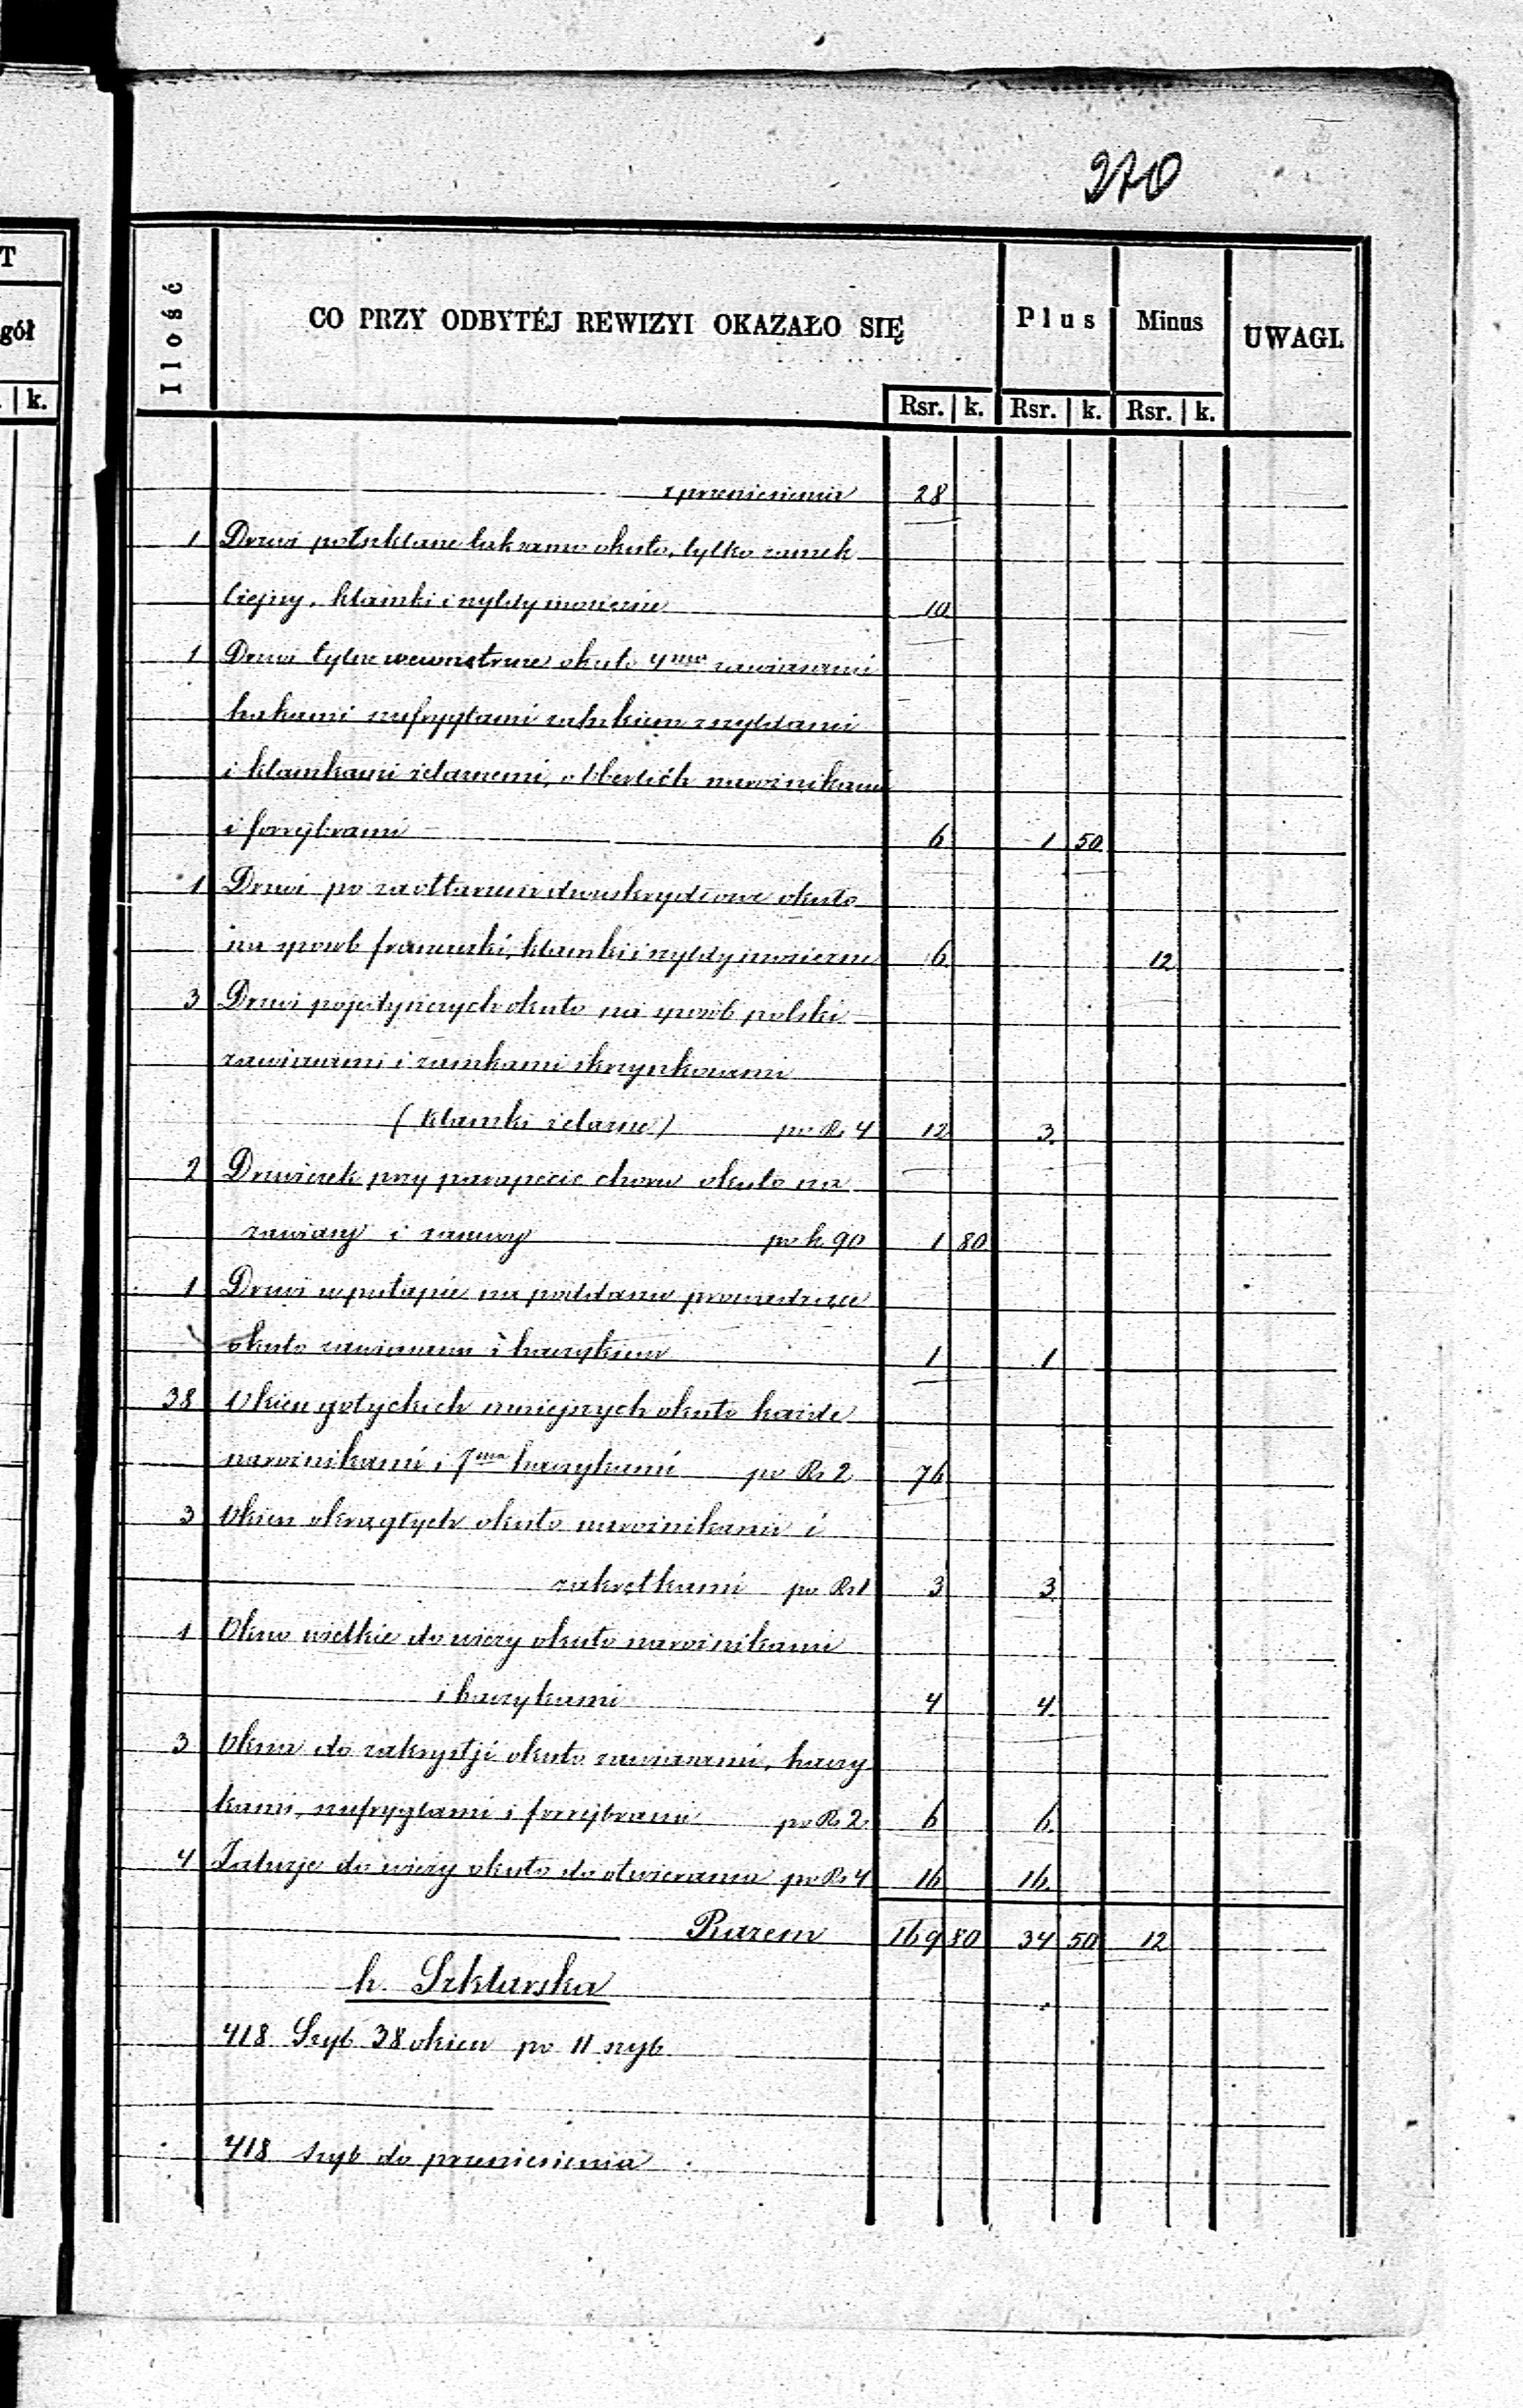 270
T
gół
k.
Ilość
CO PRZY ODBYTÉJ REWIZYI OKAZAŁO SIĘ
Plus
Minus
UWAGI.
Rsr. k. Rsr. k. Rsr. k.
z przeniesienia 28
1 Drzwi półszklane tak samo okuto, tylko zamek
lżejszy, klamki i szyldy mosiężne 10
1 Drzwi tylne wewnętrzne okuto 4ma zawiasami
hakami zufryglami zamkiem z szyldami
i klamkami żelaznemi, o Oberlich narożnikami
i forrejbrami 6 1 50
1 Drzwi po za ołtarzem dwuskrzydłowe okuto
na sposób francuski, klamki i szyldy mosiężne 6 12
3 Drzwi pojedyńczych okuto na sposób polski
zawiasami i zamkami skrzynkowemi
(klamki żelazne) po Rs 4 12 3
2 Drzwiczek przy parapecie choru okuto na
zawiasy i zasuwy po k 90 1 80
1 Drzwi w pułapie na poddasze prowadzące
okuto zawiasami i haczykiem 1 1
38 Okien gotyckich mniejszych okuto każde
narożnikami i 7ma haczykami po Rs 2 76
3 Okien okrągłych okuto narożnikami i
zakrętkami po Rs 1 3 3
1 Okno wielkie do wieży okuto narożnikami
i haczykami 4 4
3 Okna do zakrystji okuto zawiasami, haczy
kami, zufryglami i forrejbrami po Rs 2 6 6
4 Żaluzje do wieży okuto do otwierania po Rs 4 16 16
Razem 169 80 34 50 12
h. Szklarska
418 Szyb 38 okien po 11 szyb
418 szyb do przeniesienia